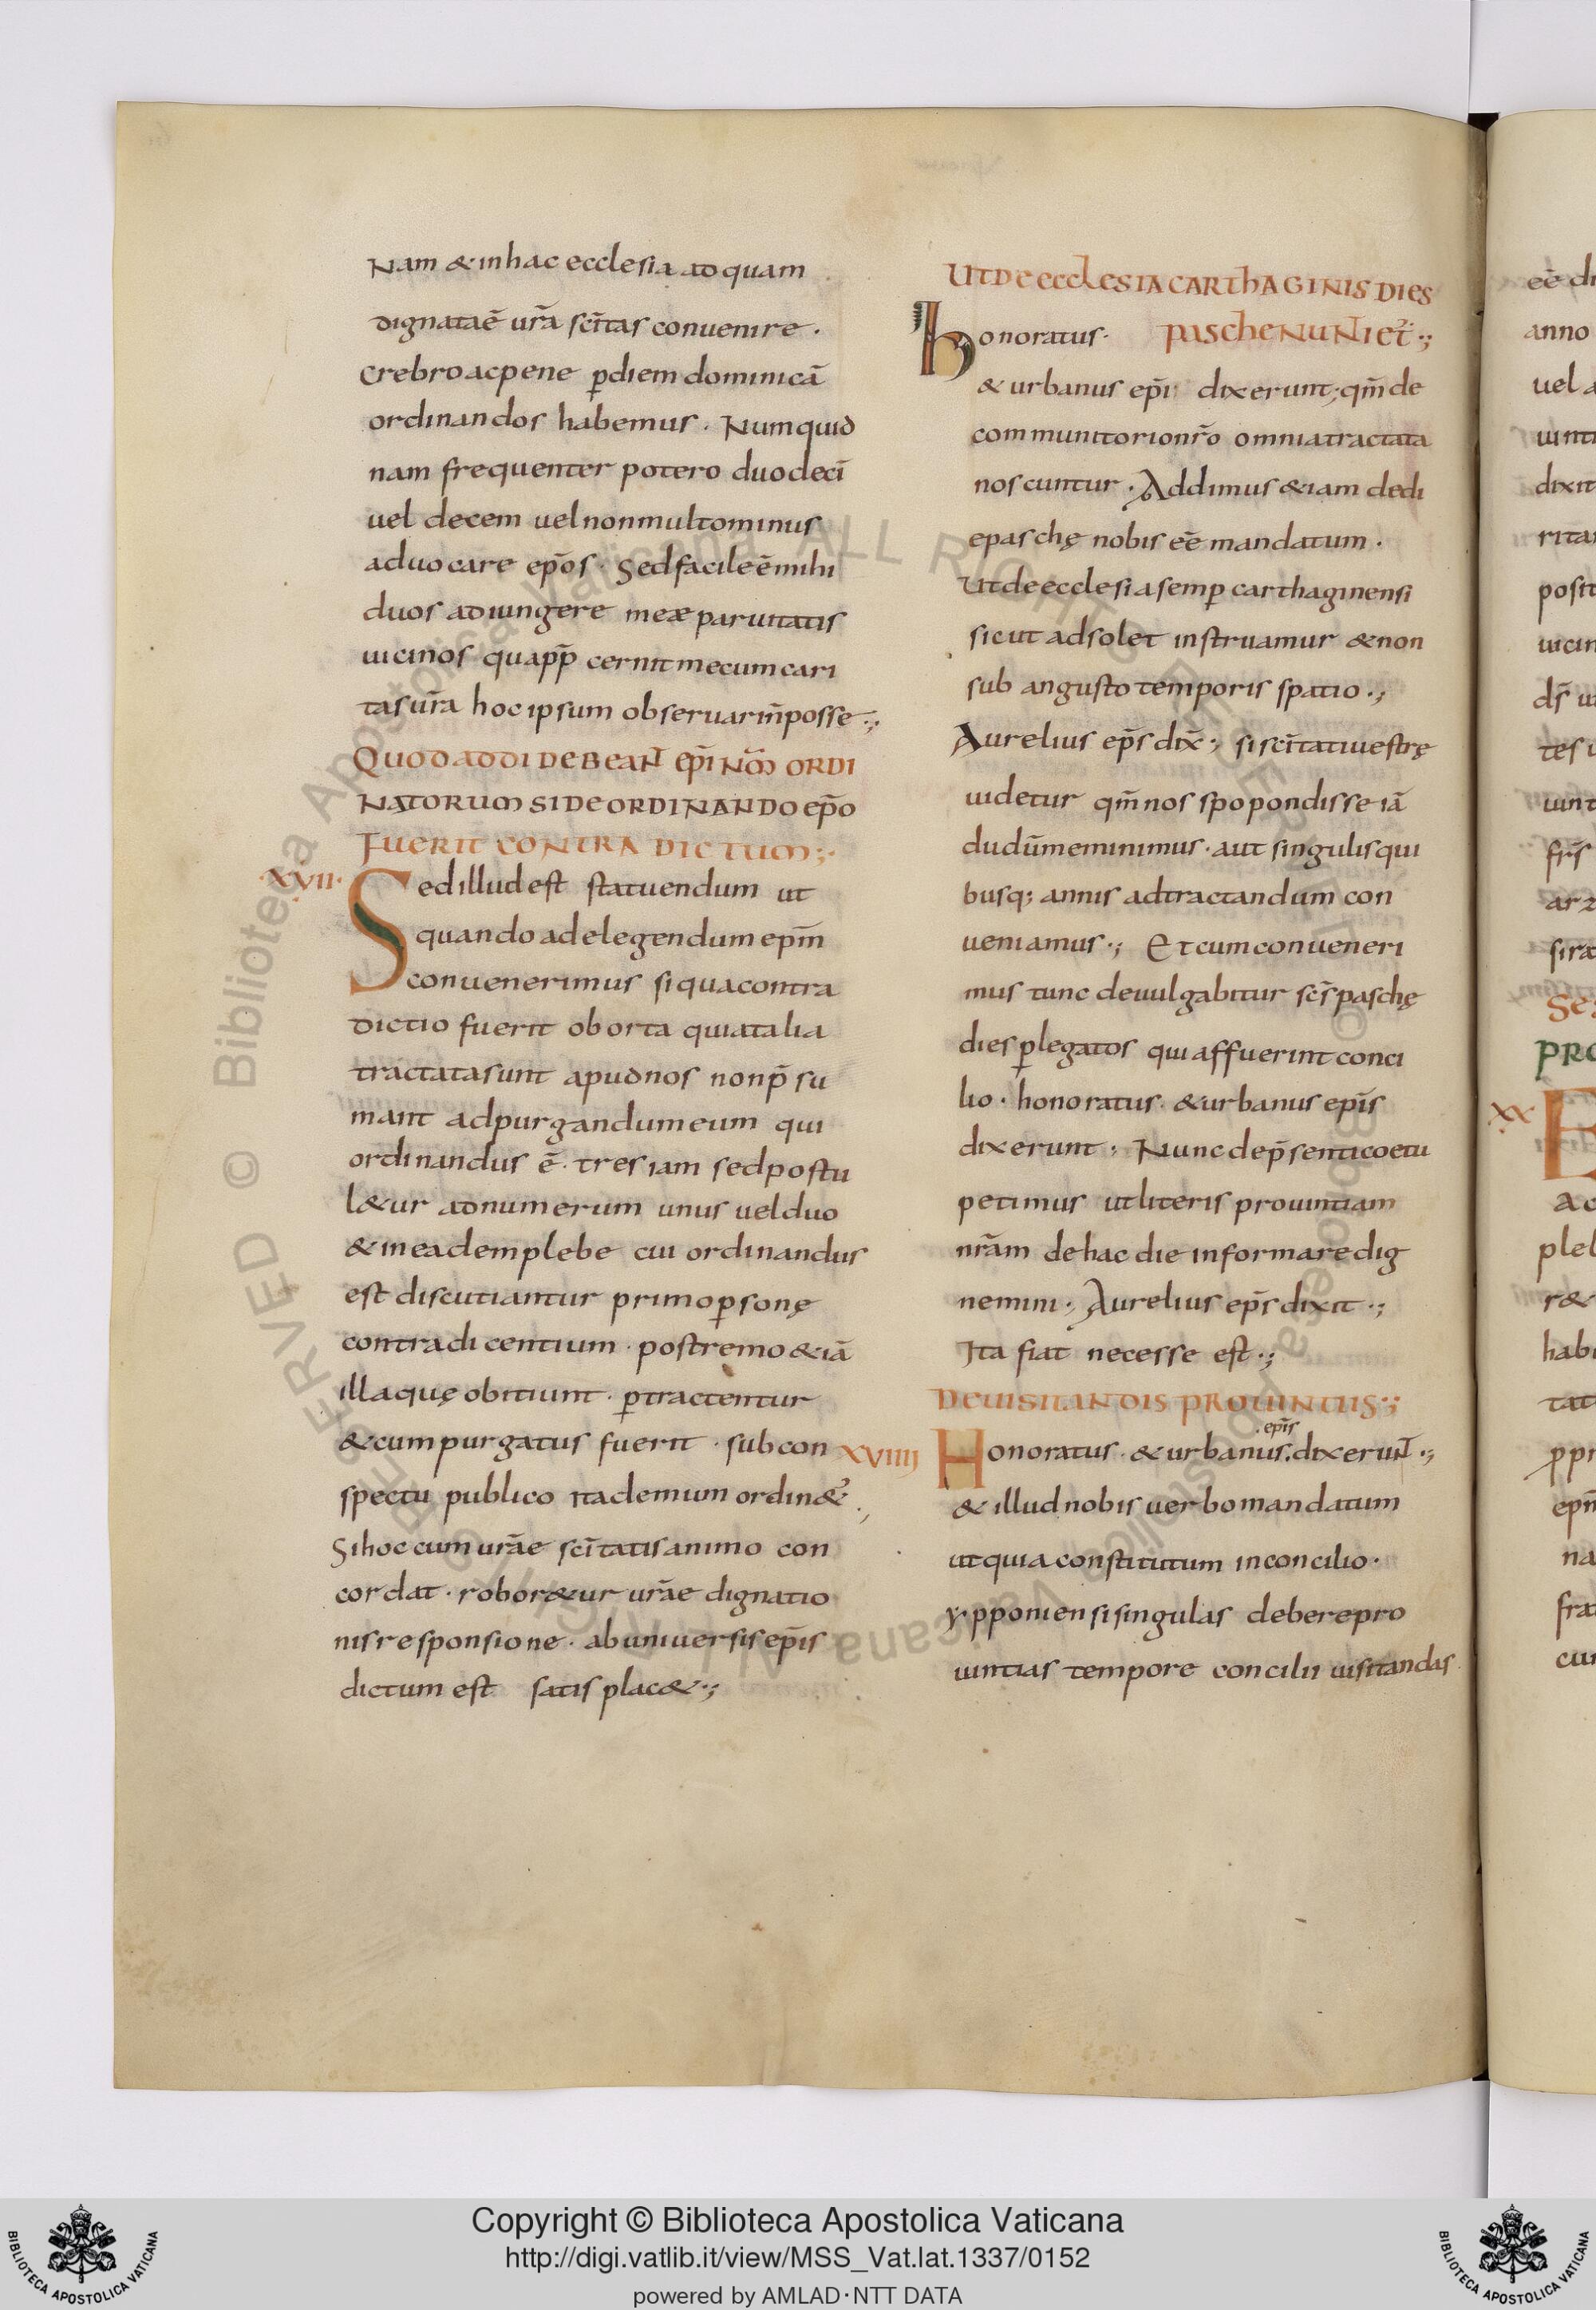 Nam & in hac ecclesia ad quam
dignata ē ur̄a sc̄itas conuenire .
Crebro ac pene p̱ diem dominicā
ordinandos habemus . Numquid
nam frequenter potero duodeci̅
uel decem uel non multo minus
aduocare ep̄os . Sed facile ē mihi
duos adiungere meæ paruitatis
uicinos quapp̄ cernit mecum cari
tas ur̄a hoc ipsum obseruari n̄ posse .;
QUOD ADDI DEBEANT EP̄I NUM̄ ORDI
NATORUM SI DE ORDINANDO EP̄O
FUERIT CONTRADICTUM ;
XVII.
Sed illud est statuendum ut
quando ad elegendum ep̄m
conuenerimus si qua contra
dictio fuerit oborta quia talia
tractata sunt apud nos non p̄su
mant ad purgandum eum qui
ordinandus ē . tres iam sed postu
l&ur ad numerum unus uel duo
& in eadem plebe cui ordinandus
est discutiantur primo p̱sonę
contradicentium . postremo & iā
illa quę obitiunt . p̱tractentur
& cum purgatus fuerit . sub con
spectu publico ita demum ordin&ur
Si hoc cum ur̄ae sc̄itatis animo con
cordat . robor&ur ur̄ae dignatio
nis responsione . ab uniuersis ep̄is
dictum est satis plac& .;
UT DE ECCLESIA CARTHAGINIS DIES
PASCHE NUNTIET .;
honoratus .
& urbanus ep̄i dixerunt ; qm̄ de
communitorio nr̄o omnia tractata
noscuntur . Addimus & iam de di
e paschę nobis eē mandatum .
Ut de ecclesia semp̱ carthaginensi
sicut adsolet instruamur & non
sub angusto temporis spatio .;
Aurelius ep̄s dix̄ ; si sc̄itati uestrę
uidetur qm̄ nos spopondisse iā
dudū meminimus . aut singulis qui
busq; annis ad tractandum con
ueniamus .; Et cum conueneri
mus tunc deuulgabitur sc̄s paschę
dies p̱ legatos qui affuerint conci
lio . honoratus . & urbanus ep̄is
dixerunt ; Nunc de p̄senti coetu
petimus ut literis prouintiam
nr̄am de hac die informare dig
nemini ; Aurelius ep̄s dixit .;
Ita fiat necesse est .;
DE UISITANDIS PROUINTIIS .;
XVIIII
Honoratus . & urbanus . ep̄is . dixerunt .;
& illud nobis uerbo mandatum
ut quia constitutum in concilio .
ypponiensi singulas debere pro
uintias tempore concilii uisitandas .
eē di
anno
uel a
dixit
posit
uicin
ds̄ u
tes u
frs̄
XX
E
ac
pleb
r&
habi
tat
ep̄m
na
frat
cum
Copyright © Biblioteca Apostolica Vaticana
http://digi.vatlib.it/view/MSS_Vat.lat.1337/0152
powered by AMLAD·NTT DATA
BIBLIOTECA APOSTOLICA VATICANA
BIBLIOTECA APOSTOLICA VATICANA